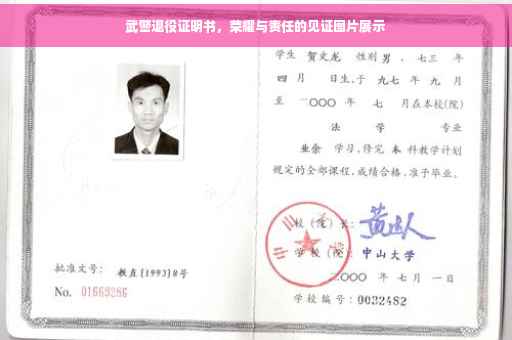 武警退役证明书，荣耀与责任的见证图片展示
学生 贺文龙 性别 男 ，七三 年
四 月 日生，于 九七 年 九 月
至 二〇〇〇 年 七 月在本校(院)
法 学 专业
业余 学习，修完 本 科教学计划
规定的全部课程，成绩合格，准予毕业。
校 (院) 长：
学 校 (院)：中山大学
二〇〇〇 年 七 月 一 日
学校编号：0032482
批准文号： 教直[1993]8号
No. 01669286